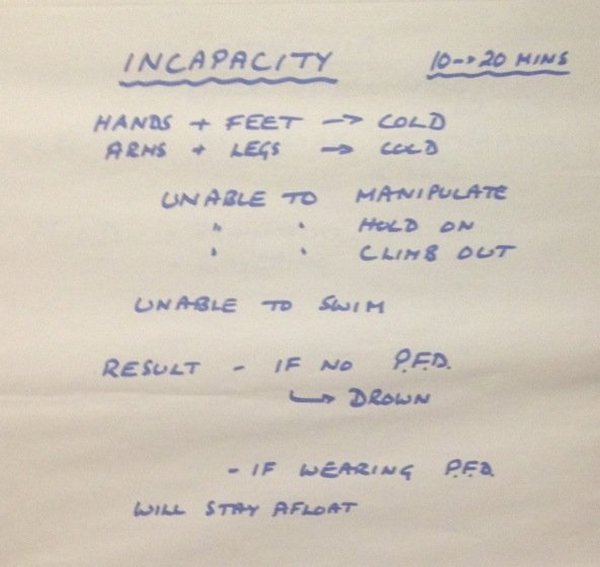 INCAPACITY 10 → 20 MINS
HANDS + FEET → COLD
ARMS + LEGS → COLD
UNABLE TO MANIPULATE
" " HOLD ON
" " CLIMB OUT
UNABLE TO SWIM
RESULT - IF NO P.F.D.
↳ DROWN
- IF WEARING P.F.D.
WILL STAY AFLOAT